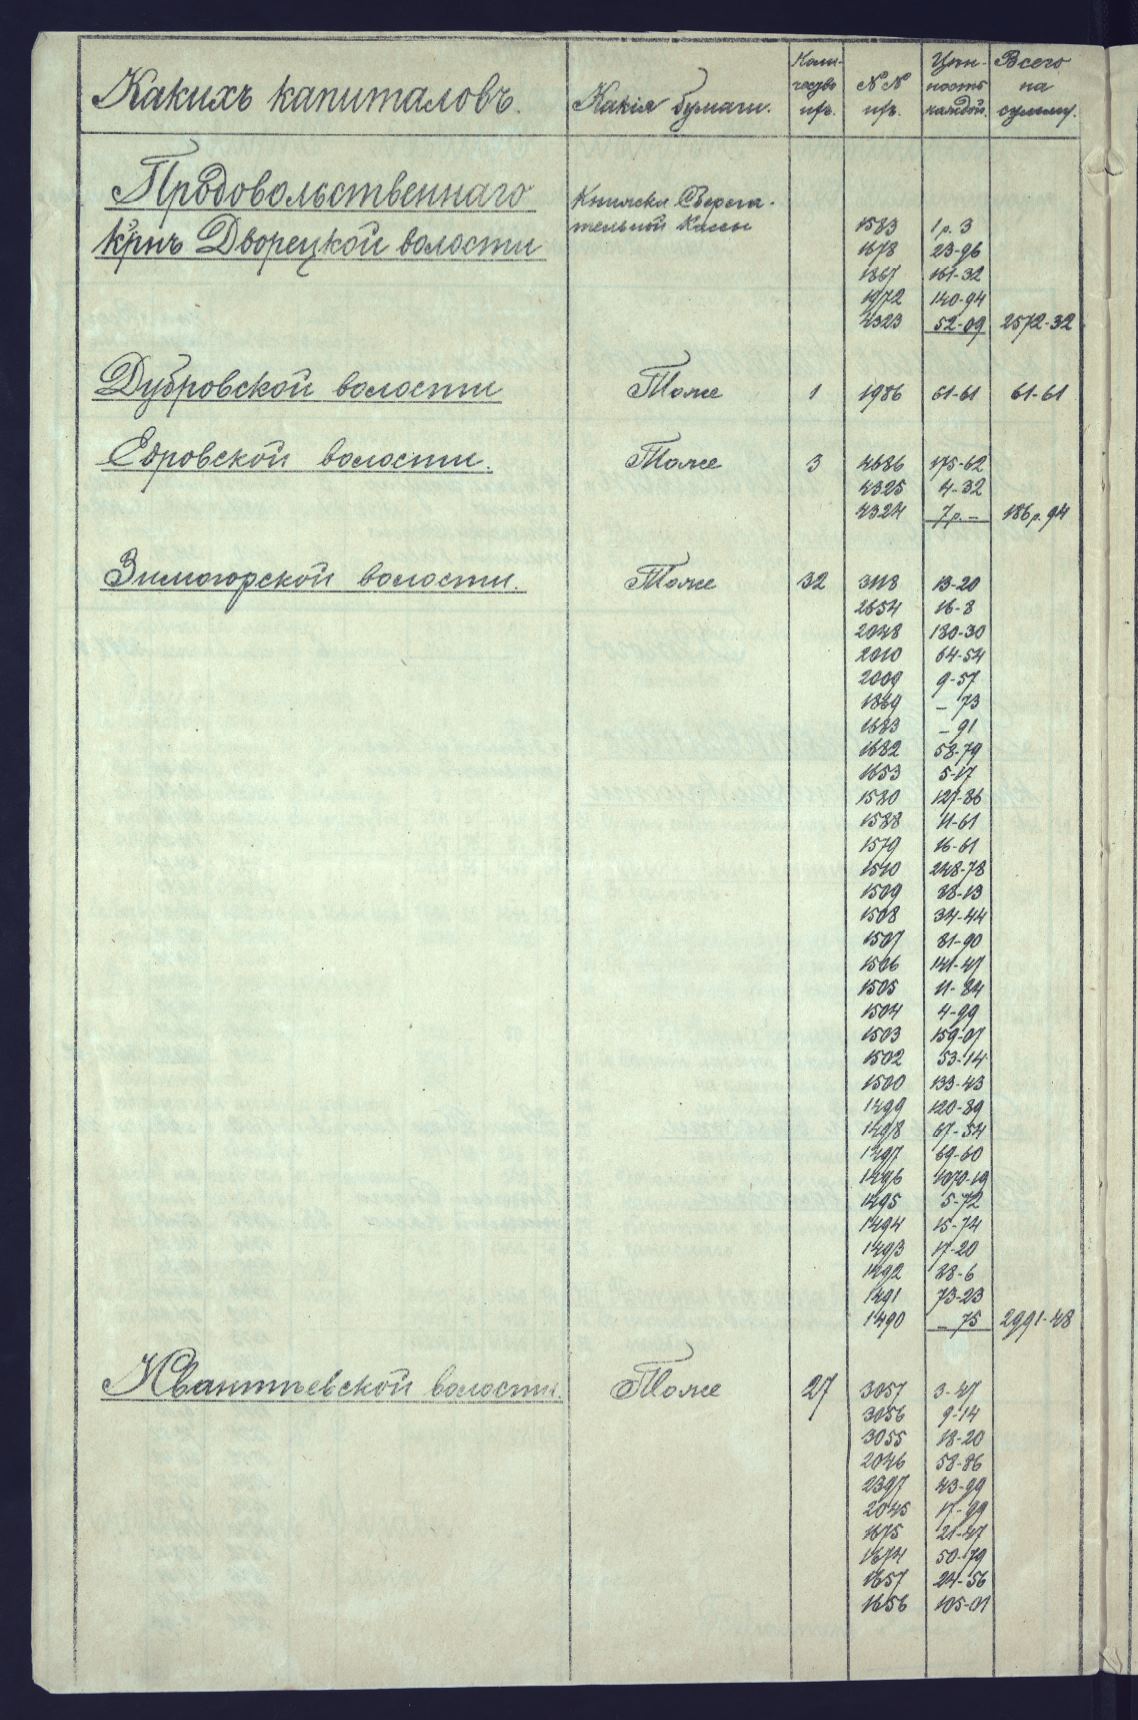 Какихъ капиталовъ. Какія бумаги. Коли-чество ихъ. №№ ихъ. Цѣн-ность каждой. Всего на сумму.
Продовольственнаго Книжки Сберега-
тельной Кассы 1583 1р. 3
Дворецкой волости 1678 23-96
1867 161-32
1972 140-94
4323 52-09 2572-32
Дубровской волости Тоже 1 1986 61-61 61-61
Едровской волости. Тоже 3 4686 175-62
4325 4-32
4324 7р.- 186р.94
Зимогорской волости. Тоже 32 3118 13-20
2654 16-8
2048 180-30
2010 64-54
2009 9-57
1869 - 73
1683 - 91
1682 58-79
1653 5-17
1580 127-86
1588 11-61
1579 16-61
1510 248-78
1509 28-13
1508 34-44
1507 81-90
1506 141-47
1505 11-84
1504 4-99
1503 159-07
1502 53-14
1500 133-43
1499 120-89
1498 67-54
1497 69-60
1496 1070-19
1495 5-72
1494 15-74
1493 17-20
1492 28-6
1491 73-23
1490 - 75 2991-48
Ивантѣевской волости. Тоже 27 3057 3-47
3056 9-14
3055 18-20
2046 58-86
2397 43-99
2045 17-99
1675 21-47
1674 50-79
1657 24-56
1656 105-01